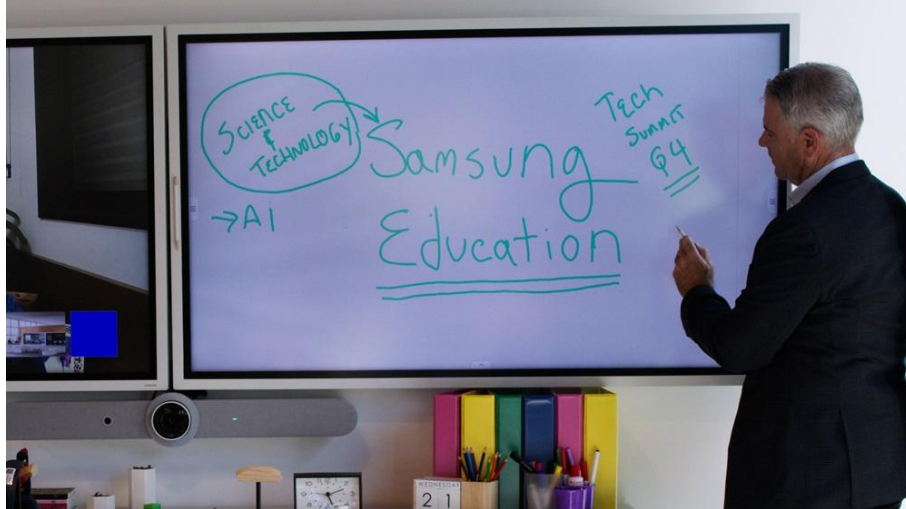 SCIENCE
&
TECHNOLOGY
→AI
Samsung
Education
Tech
SUMMIT
Q4
WEDNESDAY
21